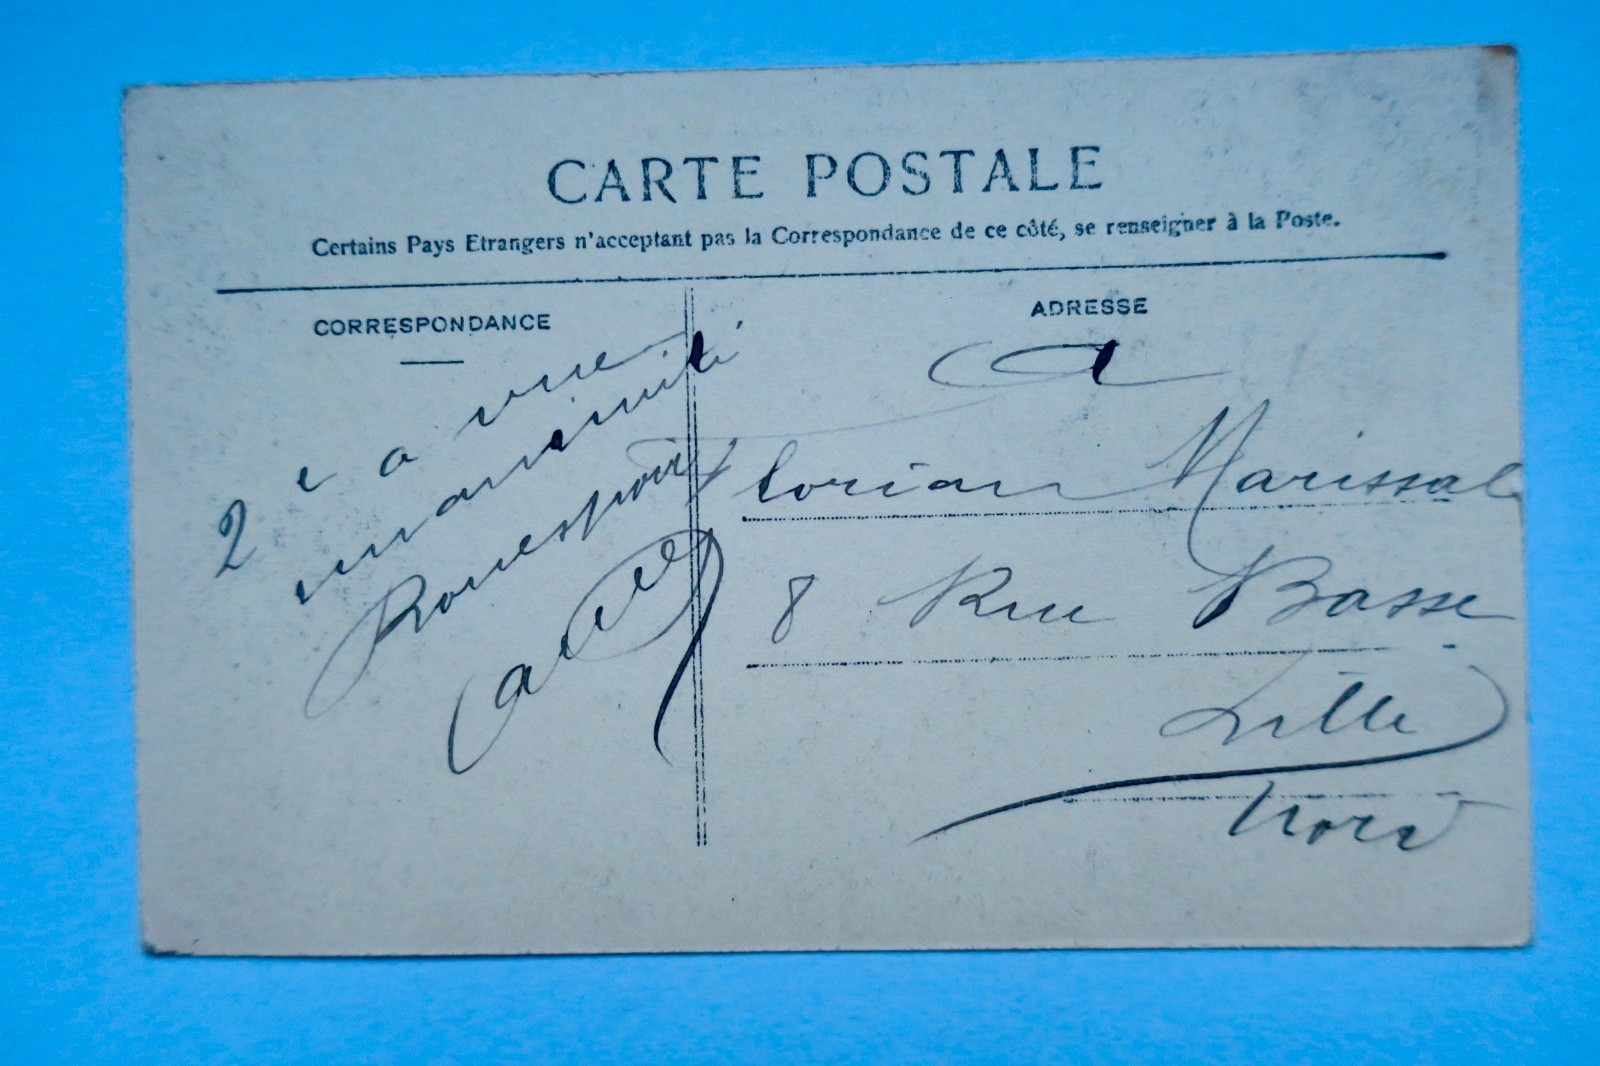 CARTE POSTALE
Certains Pays Etrangers n'acceptant pas la Correspondance de ce côté, se renseigner à la Poste.
CORRESPONDANCE
ADRESSE
2 e a vue
unanimité
A
Florian Marissal
8 Rue Basse
Lille
Nord